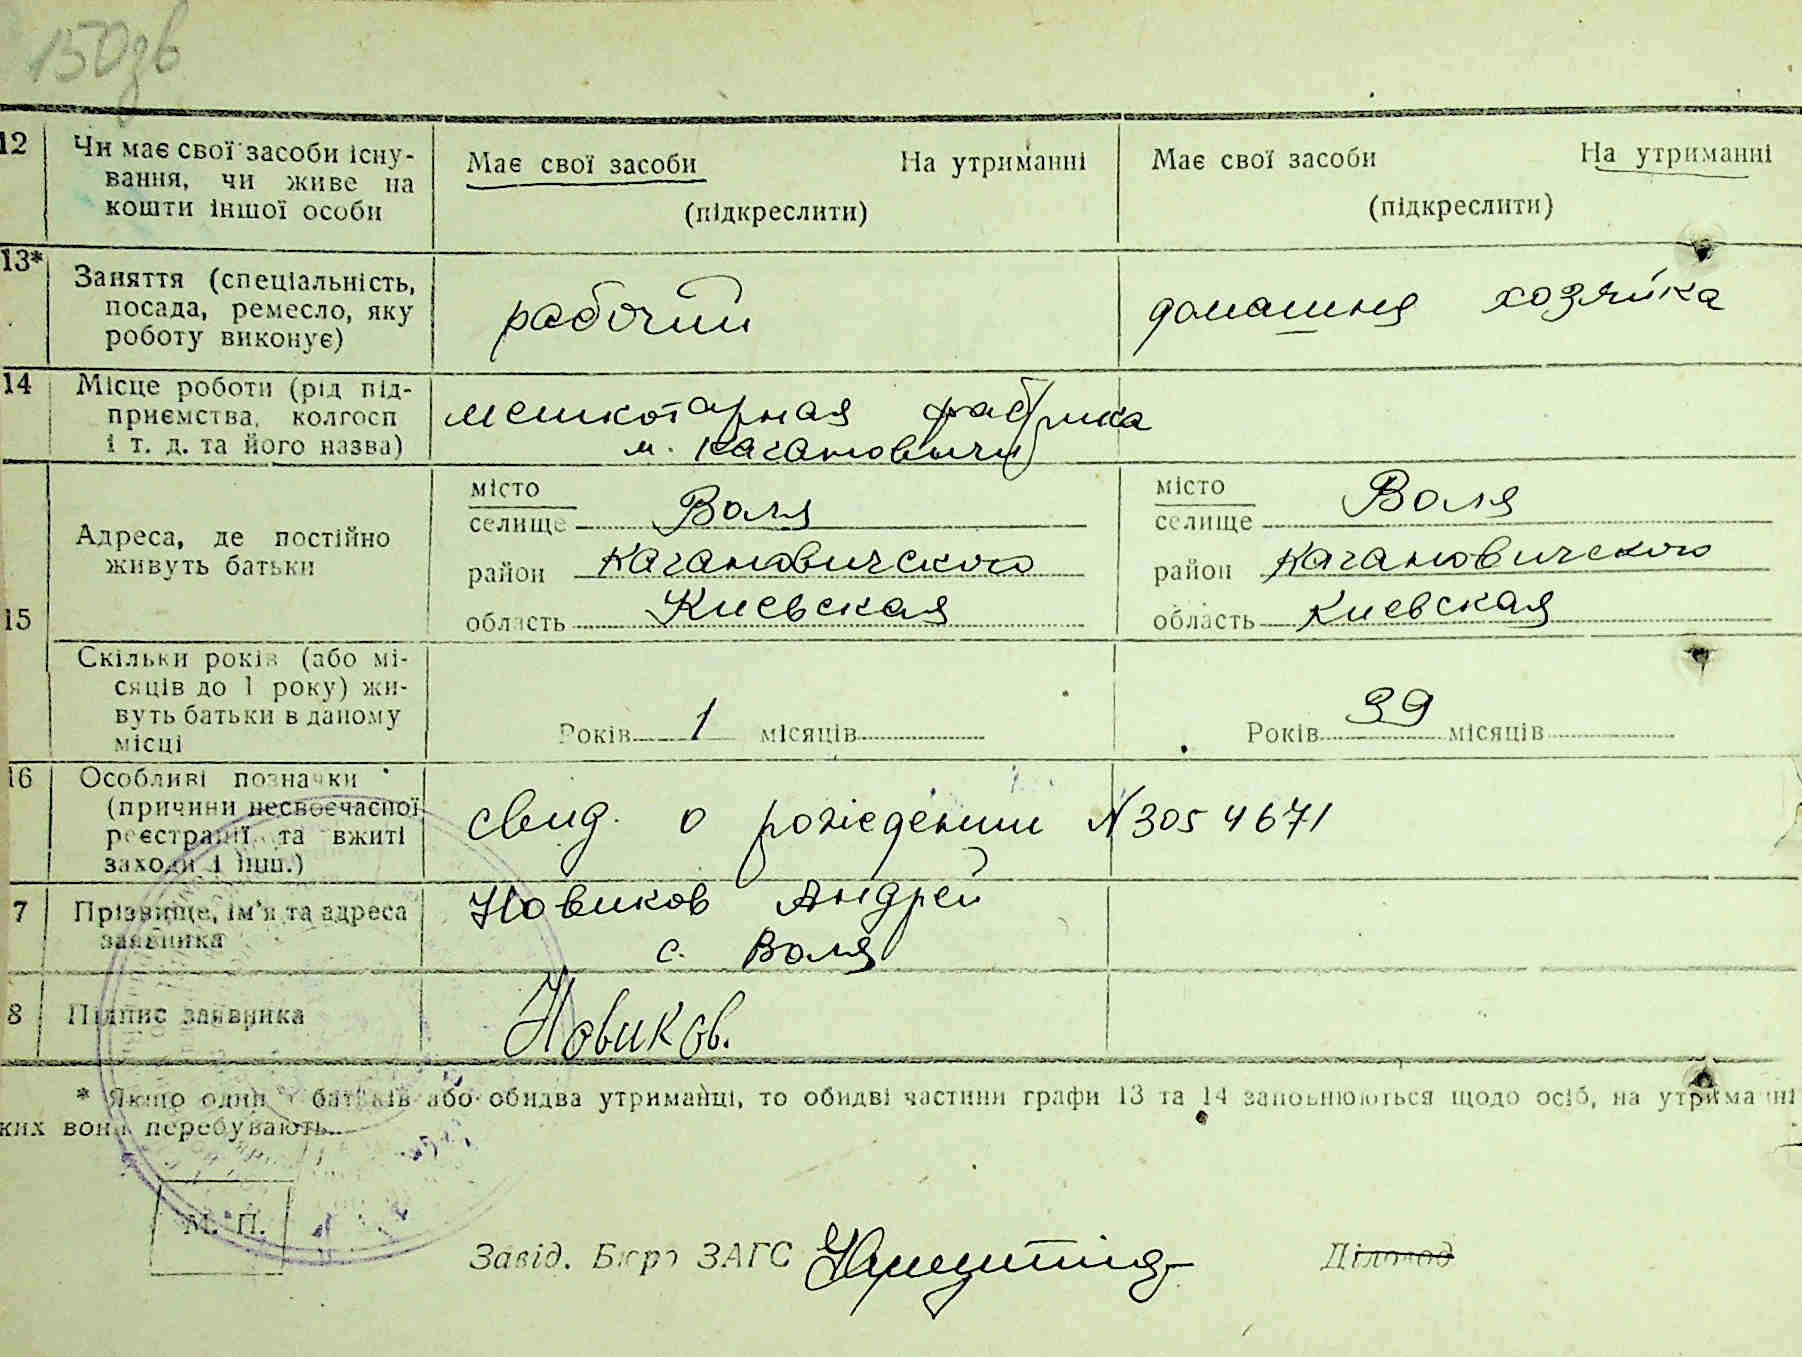 150зв
12 Чи має свої засоби існу-
вання, чи живе на
кошти іншої особи
Має свої засоби На утриманні
(підкреслити)
Має свої засоби На утриманні
(підкреслити)
13* Заняття (спеціальність,
посада, ремесло, яку
роботу виконує)
рабочий
домашня хозяйка
14 Місце роботи (рід під-
приємства, колгосп
і т. д. та його назва)
мешкотарная фабрика
м. Кагановичи
15 Адреса, де постійно
живуть батьки
місто
селище Воля
район Кагановичского
область Киевская
місто
селище Воля
район Кагановичского
область Киевская
Скільки років (або мі-
сяців до 1 року) жи-
вуть батьки в даному
місці
Років 1 місяців
Років 39 місяців
16 Особливі позначки
(причини несвоєчасної
реєстрації та вжиті
заходи і інш.)
свид. о рождении №3054671
7 Прізвище, ім'я та адреса
заявника
Новиков Андрей
с. Воля
8 Підпис заявника
Новиков.
* Якщо один з батьків або обидва утриманці, то обидві частини графи 13 та 14 заповнюються щодо осіб, на утриманні
ких вони перебувають.
М. П.
Завід. Бюро ЗАГС
Діловод